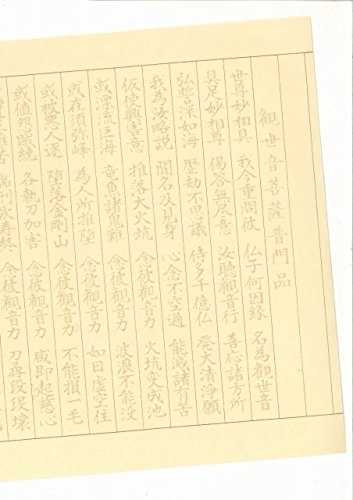 觀世音菩薩普門品
世尊妙相具 我今重問彼 仏子何因縁 名為觀世音
具足妙相尊 偈答無尽意 汝聴觀音行 善応諸方所
弘誓深如海 歴劫不思議 侍多千億仏 発大清浄願
我為汝略説 聞名及見身 心念不空過 能滅諸有苦
仮使興害意 推落大火坑 念彼觀音力 火坑変成池
或漂流巨海 竜魚諸鬼難 念彼觀音力 波浪不能没
或在須弥峰 為人所推堕 念彼觀音力 如日虚空住
或被悪人逐 堕落金剛山 念彼觀音力 不能損一毛
或値怨賊繞 各執刀加害 念彼觀音力 咸即起慈心
難苦 臨刑欲寿終 念彼觀音力 刀尋段段壊